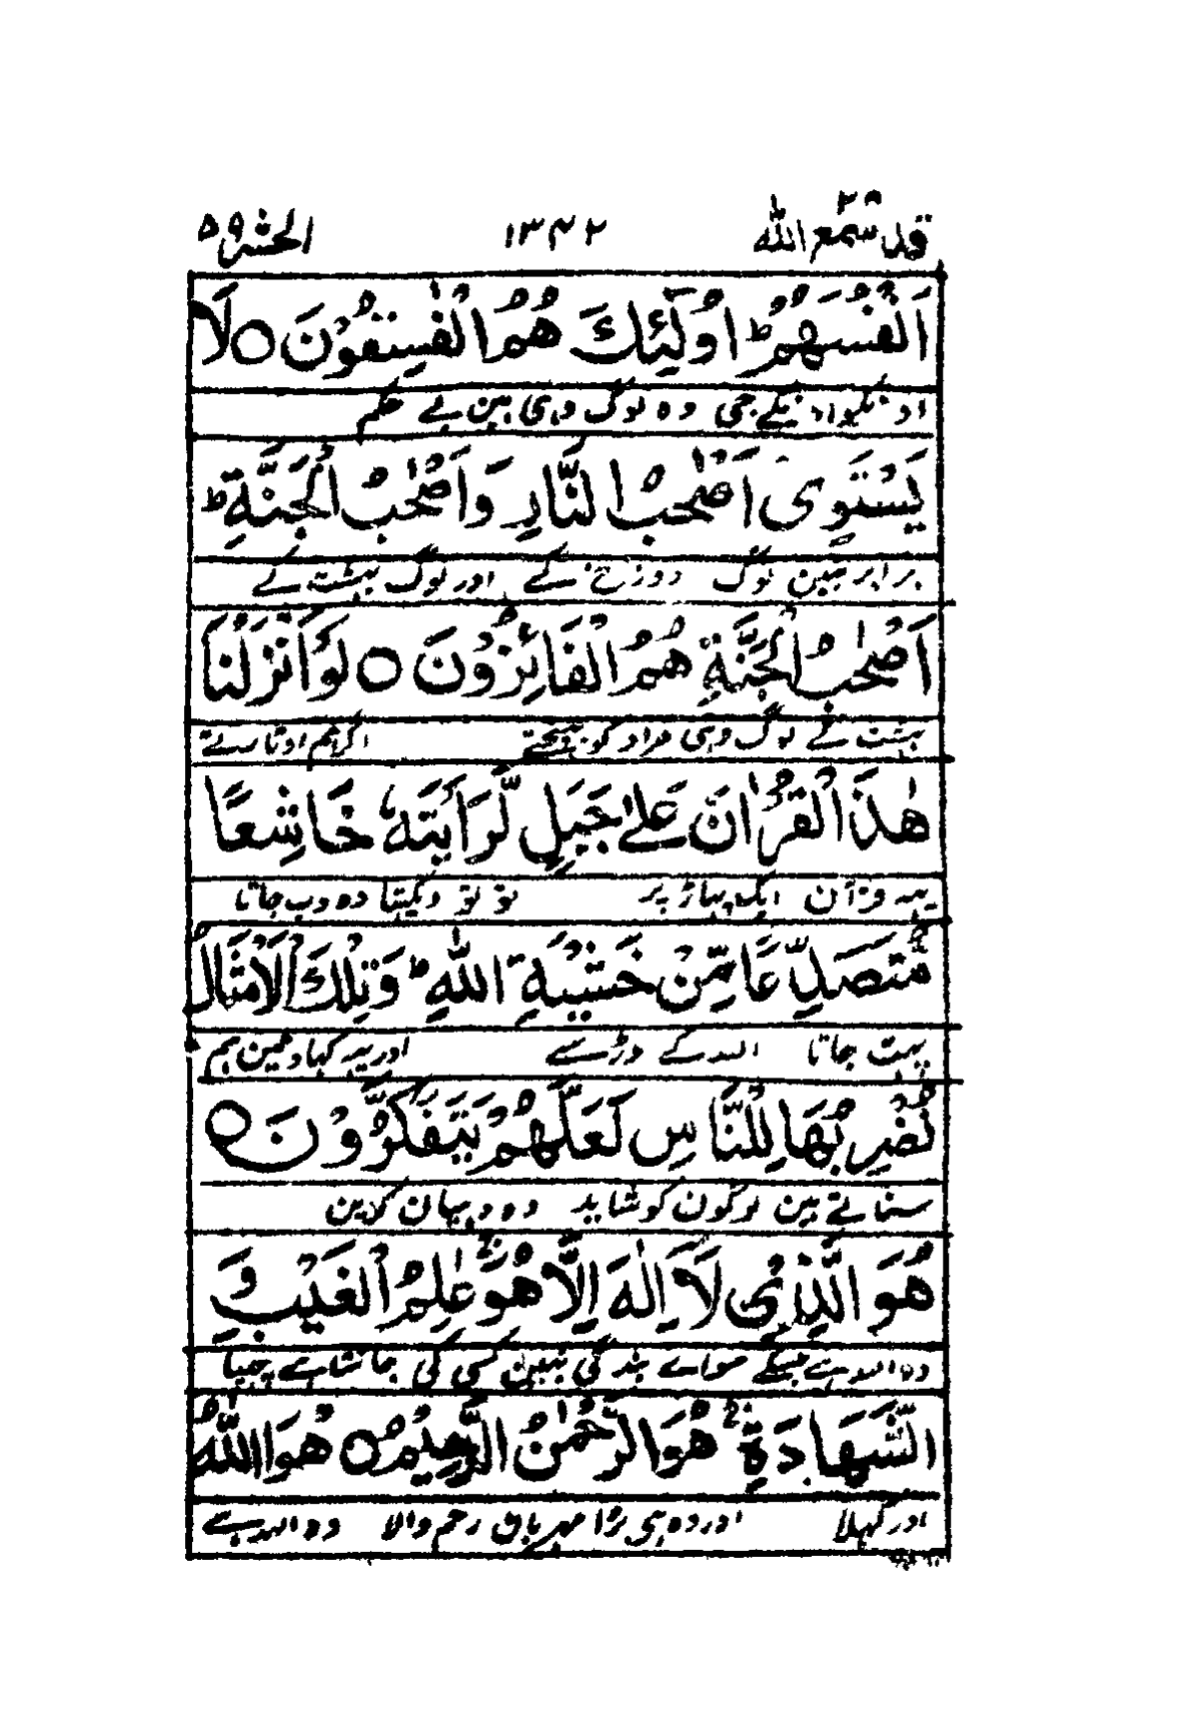 قد سمع الله ٢٨ ١٣٤٢ الحشر ٥٩
اَنْفُسَهُمْ ؕ اُولٰٓئِكَ هُمُ الْفٰسِقُوْنَ ○ لَا
اونکو اونکے جی وہ لوگ وہی ہین بے حکم
يَسْتَوِىْۤ اَصْحٰبُ النَّارِ وَاَصْحٰبُ الْجَنَّةِ ؕ
برابر نہین لوگ دوزخ کے اور لوگ بہشت کے
اَصْحٰبُ الْجَنَّةِ هُمُ الْفَآئِزُوْنَ ○ لَوْ اَنْزَلْنَا
بہشت کے لوگ وہی مراد کو پہنچے اگر ہم اوتارتے
هٰذَا الْقُرْاٰنَ عَلٰى جَبَلٍ لَّرَاَيْتَهٗ خَاشِعًا
یہہ قرآن ایک پہاڑ پر تو تو دیکہتا وہ دب جاتا
مُّتَصَدِّعًا مِّنْ خَشْيَةِ اللّٰهِ ؕ وَتِلْكَ الْاَمْثَالُ
پہٹ جاتا اللہ کے ڈر سے اور یہہ کہاوتین ہم
نَضْرِبُهَا لِلنَّاسِ لَعَلَّهُمْ يَتَفَكَّرُوْنَ ○
سناتے ہین لوگون کو شاید وہ دہیان کرین
هُوَ اللّٰهُ الَّذِىْ لَاۤ اِلٰهَ اِلَّا هُوَ ۚ عٰلِمُ الْغَيْبِ وَ
وہ اللہ ہے جسکے سواے بندگی نہین کسی کی جانتا ہے چہپا
الشَّهَادَةِ ۚ هُوَ الرَّحْمٰنُ الرَّحِيْمُ ○ هُوَ اللّٰهُ
اور کہلا اور وہ ہی بڑا مہربان رحم والا وہ اللہ ہے